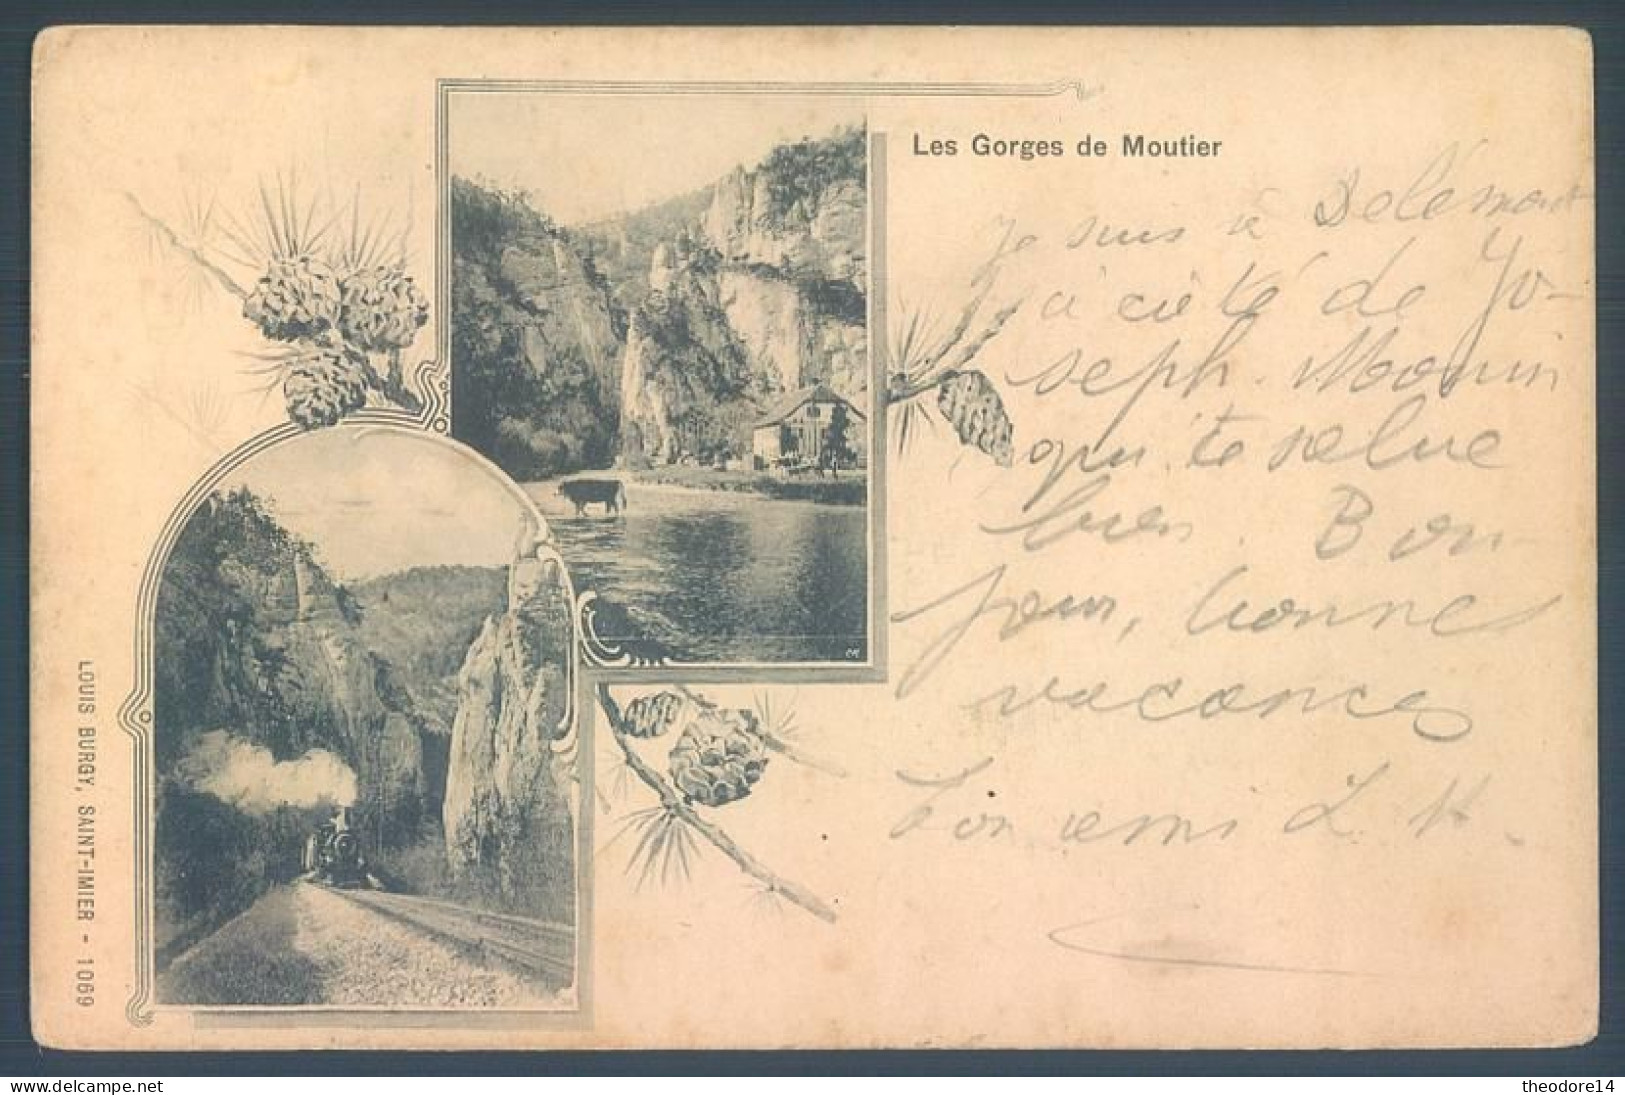 Les Gorges de Moutier
Je suis à Delémont
à côté de Jo-
seph. Monin
qui te salue
bien. Bon-
jour, bonnes
vacances
Ton ami L. H.
LOUIS BURGY, SAINT-IMIER - 1069
delcampe.net
theodore14